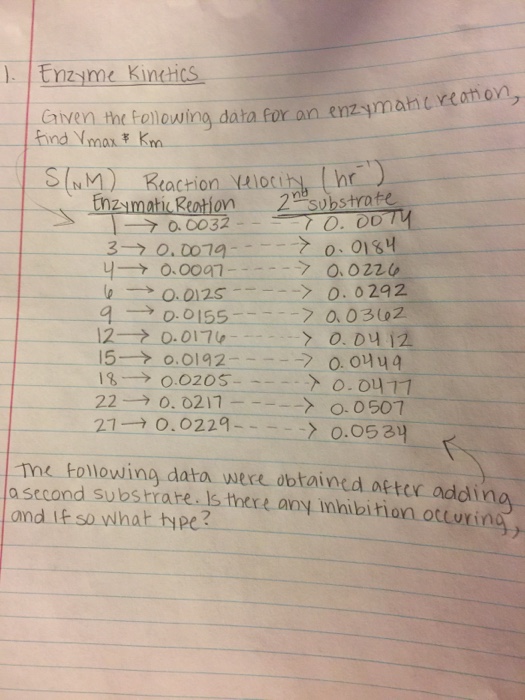 1. Enzyme Kinetics
Given the following data for an enzymatic reation,
find Vmax & Km
S(NM) Reaction velocity (hr⁻¹)
Enzymatic Reation 2nd substrate
1 → 0.0032 ---→ 0.0074
3 → 0.0079 ----→ 0.0184
4 → 0.0097 -----→ 0.0226
6 → 0.0125 -----→ 0.0292
9 → 0.0155 -----→ 0.0362
12 → 0.0176 -----→ 0.0412
15 → 0.0192 -----→ 0.0449
18 → 0.0205 -----→ 0.0477
22 → 0.0217 -----→ 0.0507
27 → 0.0229 -----→ 0.0534
The following data were obtained after adding
a second substrate. Is there any inhibition occuring,
and if so what type?